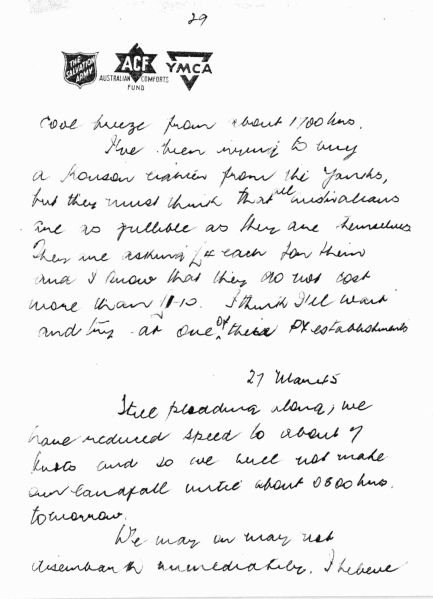 29
THE
SALVATION
ARMY
ACF
AUSTRALIAN COMFORTS
FUND
YMCA
cool breeze from about 1700 hrs.
I've been trying to buy
a Ronson lighter from the Yanks,
but they must think that all Australians
are as gullible as they are themselves
They are asking £4 each for them
and I know that they do not cost
more than £1-10. I think I'll wait
and try at one of their PX establishments
27 March 5
Still plodding along, we
have reduced speed to about 7
knots and so we will not make
our landfall until about 0800 hrs.
tomorrow.
We may or may not
disembark immediately. I believe